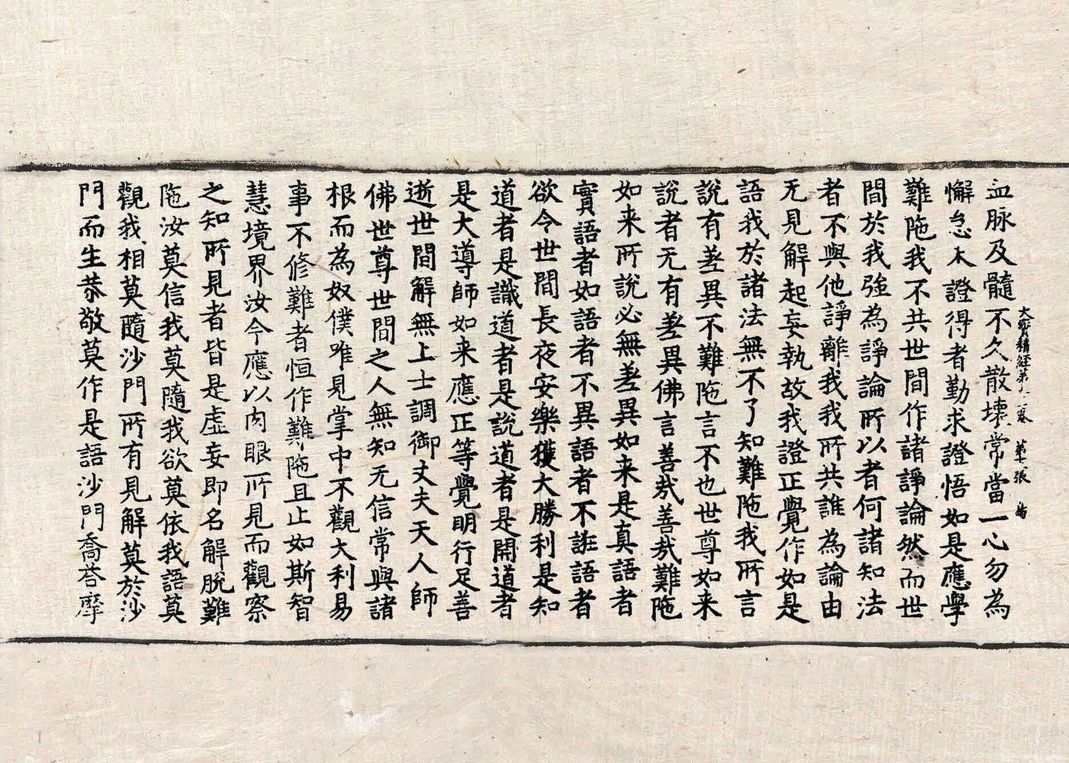 血脉及髓不久散壞常當一心勿為
大寳積經第 卷 第 張 鳥
懈怠未證得者勤求證悟如是應學
難陁我不共世間作諸諍論然而世
間於我強為諍論所以者何諸知法
者不與他諍離我我所共誰為論由
无見解起妄執故我證正覺作如是
語我於諸法無不了知難陁我所言
說有差異不難陁言不也世尊如来
說者无有差異佛言善㢤善㢤難陁
如来所說必無差異如来是真語者
實語者如語者不異語者不誑語者
欲令世間長夜安樂獲大勝利是知
道者是識道者是說道者是開道者
是大導師如来應正等覺明行足善
逝世間解無上士調御丈夫天人師
佛世尊世間之人無知无信常與諸
根而為奴僕唯見掌中不觀大利易
事不修難者恒作難陁且止如斯智
慧境界汝今應以肉眼所見而觀察
之知所見者皆是虛妄即名解脫難
陁汝莫信我莫隨我欲莫依我語莫
觀我相莫隨沙門所有見解莫於沙
門而生恭敬莫作是語沙門喬荅摩